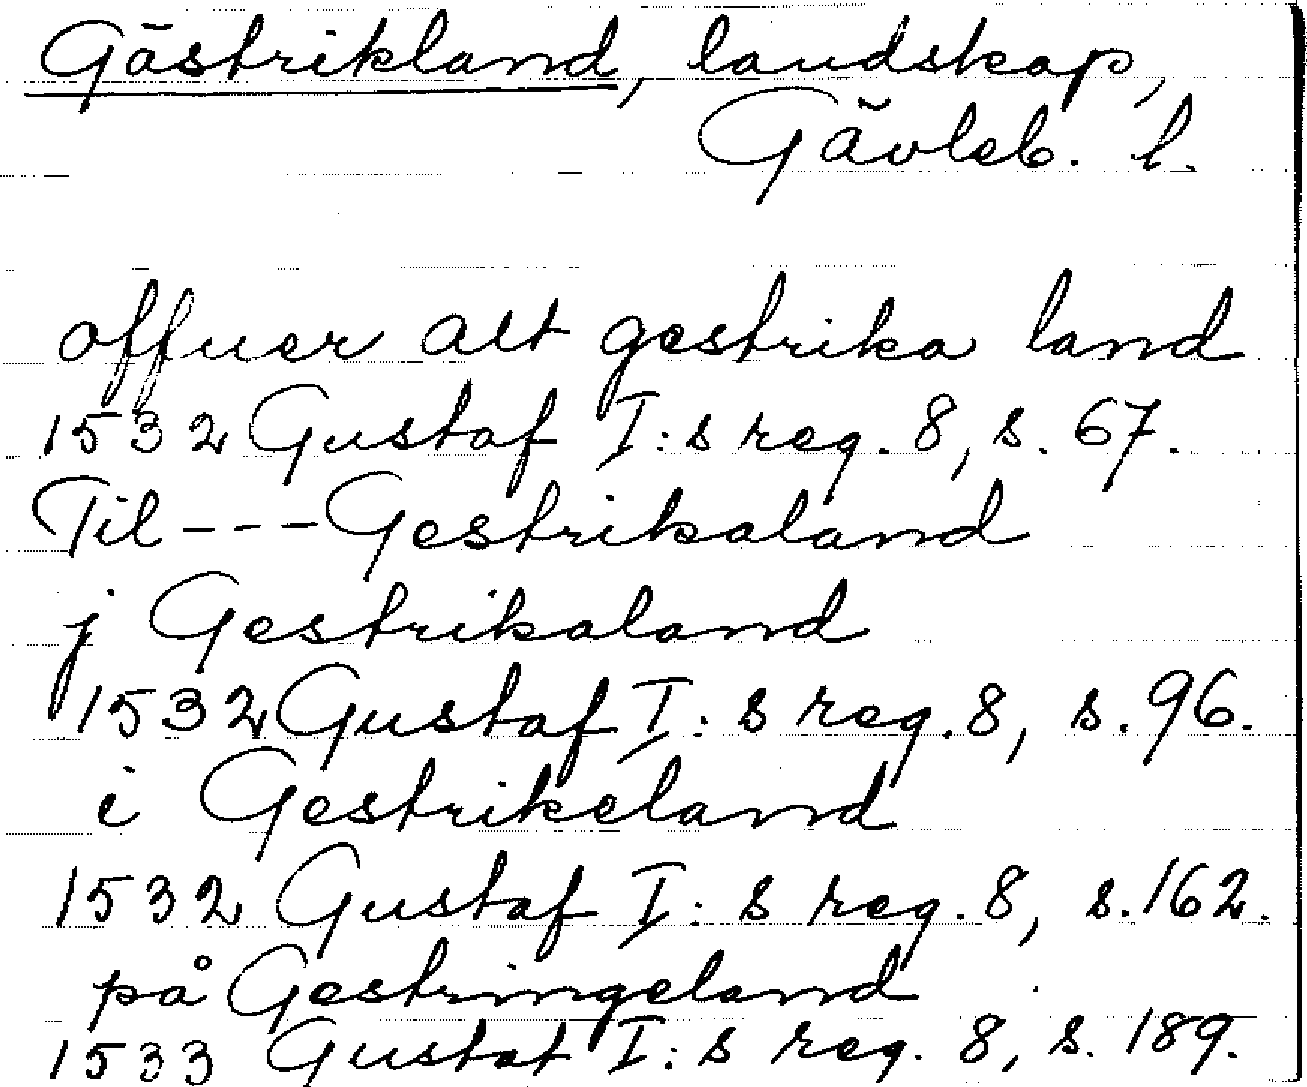 Gästrikland, landskap,
Gävleb. l.
offuer alt gestrika land
1532 Gustaf I:s reg. 8, s. 67.
Til --- Gestrikaland
j Gestrikaland
1532 Gustaf I:s reg. 8, s. 96.
i Gestrikeland
1532 Gustaf I:s reg. 8, s. 162.
på Gestringeland
1533 Gustaf I:s reg. 8, s. 189.